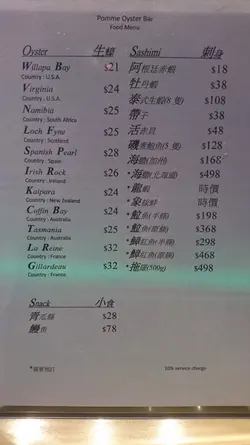 Pomme Oyster Bar
Food Menu
Oyster 生蠔
Willapa Bay $21
Country : U.S.A.
Virginia $24
Country : U.S.A.
Namibia $25
Country : South Africa
Loch Fyne $25
Country : Scotland
Spanish Pearl $28
Country : Spain
Irish Rock $26
Country : Ireland
Kaipara $24
Country : New Zealand
Coffin Bay $24
Country : Australia
Tasmania $25
Country : Australia
La Reine $32
Country : France
Gillardeau $32
Country : France
Sashimi 刺身
阿根廷赤蝦 $18
牡丹蝦 $38
泰式生蝦(8隻) $108
帶子 $38
活赤貝 $48
鮑魚(5隻) $128
海膽(加州) $168
*海膽(北海道) $498
*龍蝦 時價
*象拔蚌 時價
(半條) $198
(原條) $368
(半條) $298
(原條) $468
(500g) $498
Snack 小食
青瓜 $28
鰻魚 $78
10% service charge